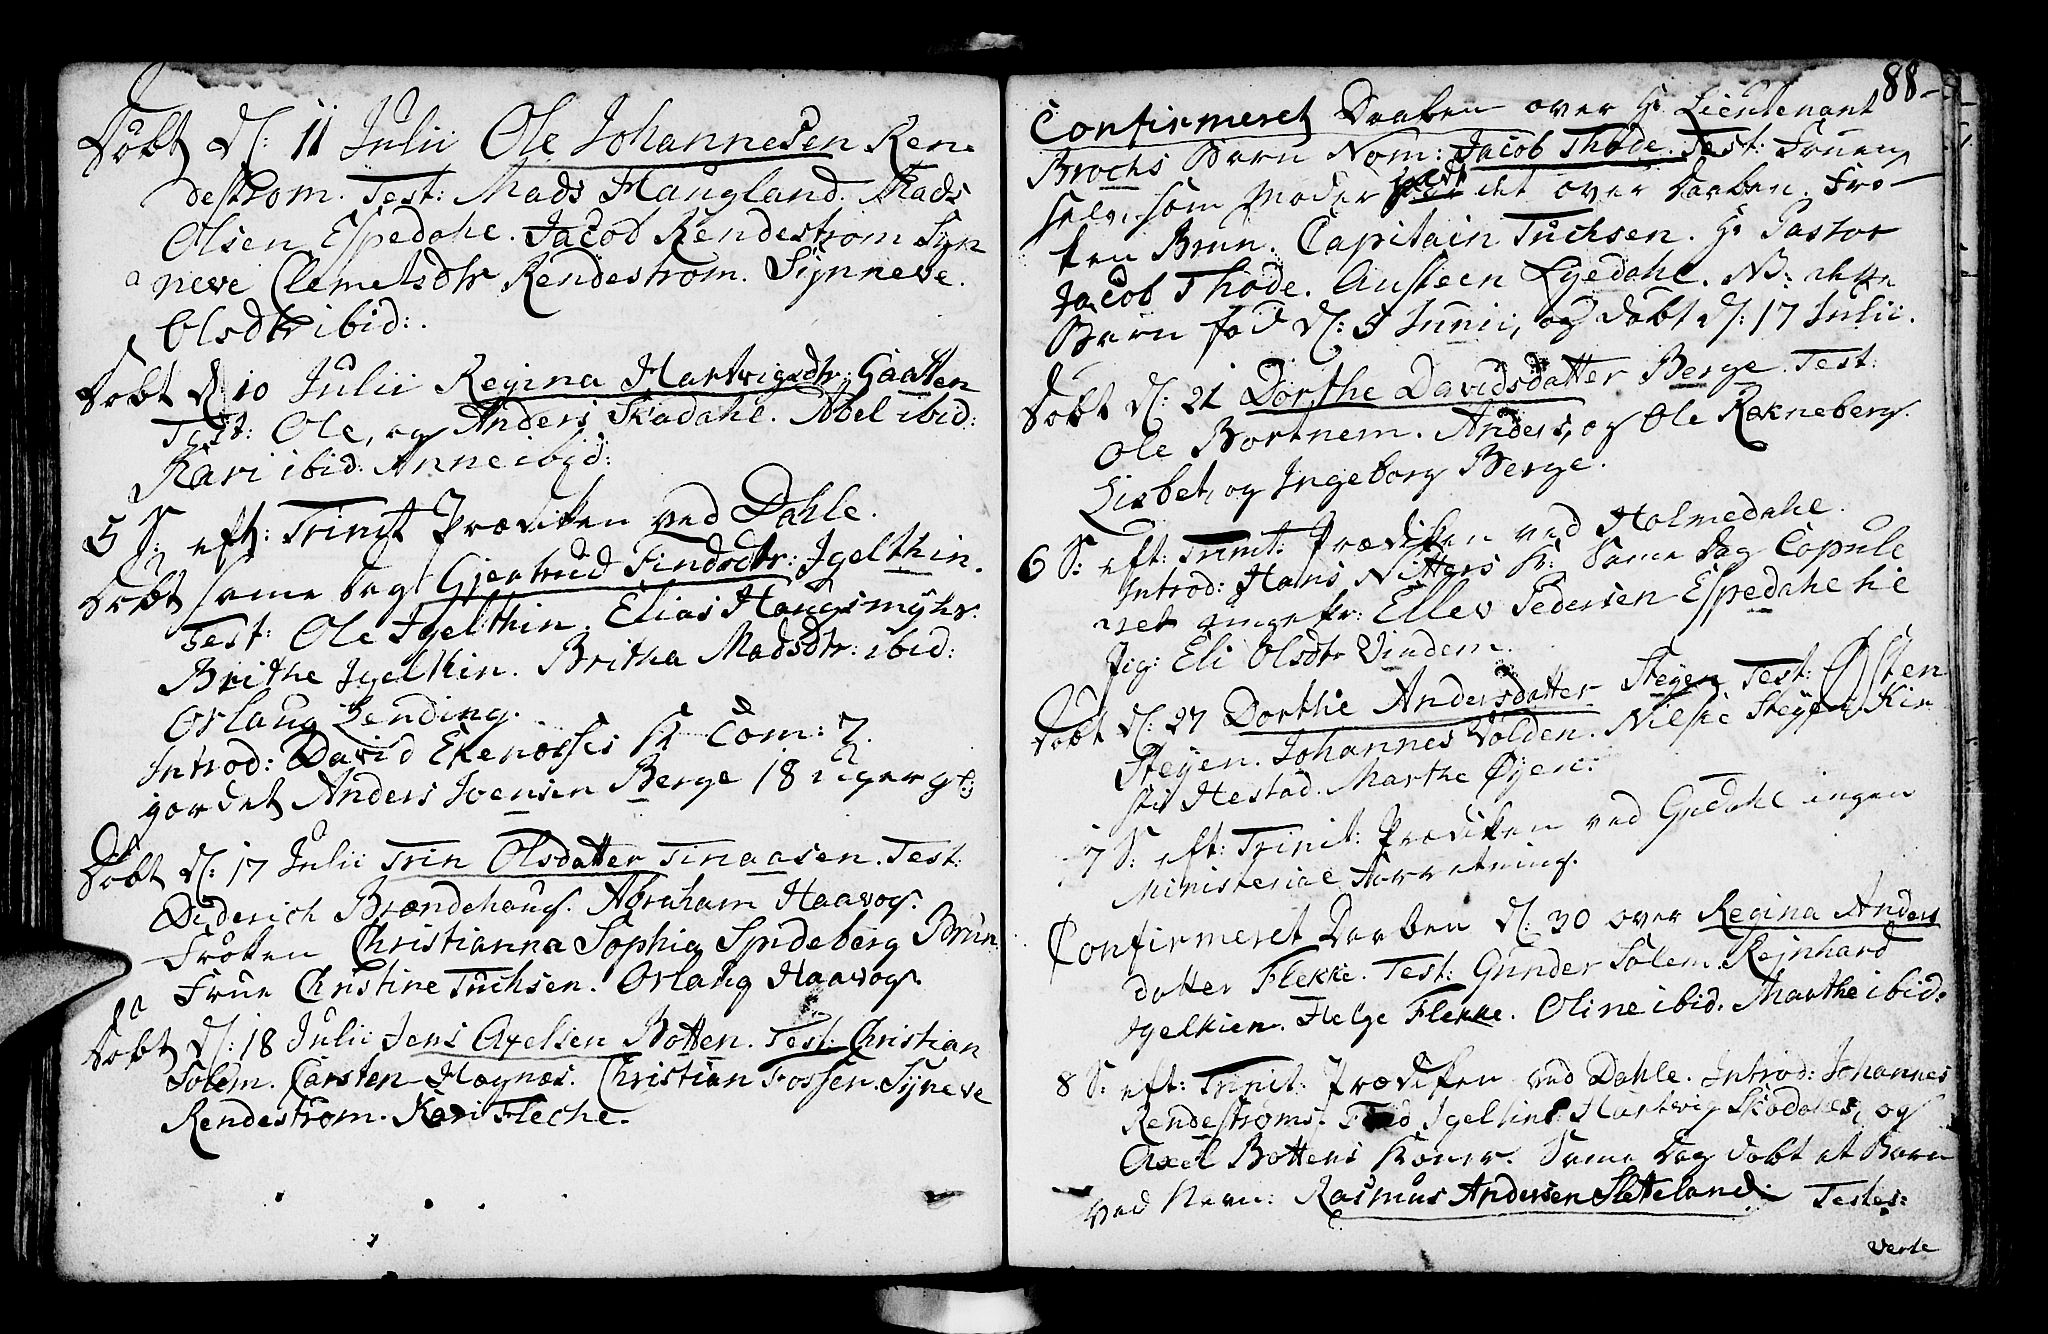 Døbt d: 11 Julii Ole Johannesen Ren
destrom. Test: Mads Haugland. Mads
Olsen Espedahl. Jacob Rendestrom Syn
neve Clemetsdtr Rendestrom. Synneve.
Olsdtr ibid:.
Døbt d 10 Julii Regina Hartvigsdtr: Gaatten
Test: Ole, og Anders Skadahl. Abel ibid:
Kari ibid: Anne ibid:
5 S: eft: Trinit Prædiken ved Dahle.
Døbt samme dag Gjertrud Findsdtr: Igelthin.
Test: Ole Igelthin. Elias Haugsmyhr.
Brithe Igelthin. Britha Madsdtr: ibid:
Orlaug Lending.
Introd: David Ekenæsses K Com: 7.
jordet Anders Joensen Berge 18 uger gl:
Døbt d: 17 Julii Trin Olsdatter Tinaasen. Test:
Diderich Brændehaug. Abraham Haavog.
Frøken Christianna Sophia Syndeberg Brun
Frue Christine Tuchsen. Orlaug Haavog.
Døbt d: 18 Julii Jens Axelsen Botten. Test: Christian
Solem. Carsten Hægnæs. Christian Fossen. Syneve
Rendestrom. Kari Fleche.
88
Confirmeret Daaben over Hr Lieutenant
Brochs Barn Nom: Jacob Thode. Test: Fruen
selv, som Moder det over Daaben. Frø
ken Brun. Capitain Tuchsen. Hr Pastor
Jacob Thode. Austeen Lyedahl. NB: dette
Barn fød d: 5 Junii, og døbt d: 17 Julii.
Døbt d: 21 Dorthe Davidsdatter Berge. Test:
Ole Bortnem. Anders, og Ole Rækneberg.
Lisbet, og Ingeborg Berge.
6 S: eft: Trinit: Prædiken ved Holmedahl.
Introd: Hans Nitters K: Samme dag Copule
ret ungekr: Ellev Pedersen Espedahl til
Pig: Eli Olsdtr Vindem.
Døbt d: 27 Dorthe Andersdatter Steyen Test: Østen
Steyen. Johannes Volden. Nilsie Steyen Kir
sti Hestad. Marthe Øyere:
7 S: eft: Trinit: Prædiken ved Guedahl ingen
Ministerial Forretning.
Confirmeret Daaben d: 30 over Regina Anders
datter Flekke. Test: Gunder Solem. Rejnhard
Igelkien. Helge Flekke. Oline ibid. Marthe ibid:
8 S: eft: Trinit: Prædiken ved Dahle. Introd: Johannes
Rendestroms. Igelkins Hartvig Skodahls, og
Axel Bottens Koner. Samme Dag døbt et Barn
ved Navn: Rasmus Andersen Sletteland. Testes:
verte